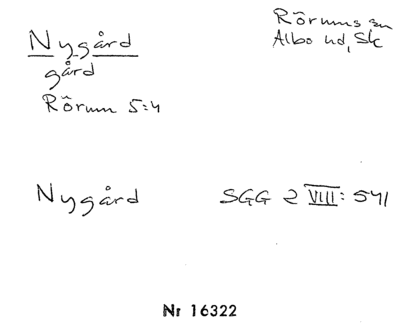 Nygård
gård
Rörum 5:4
Rörums sn
Albo hd, Sk
Nygård
SGG 2 VIII: 541
Nr 16322